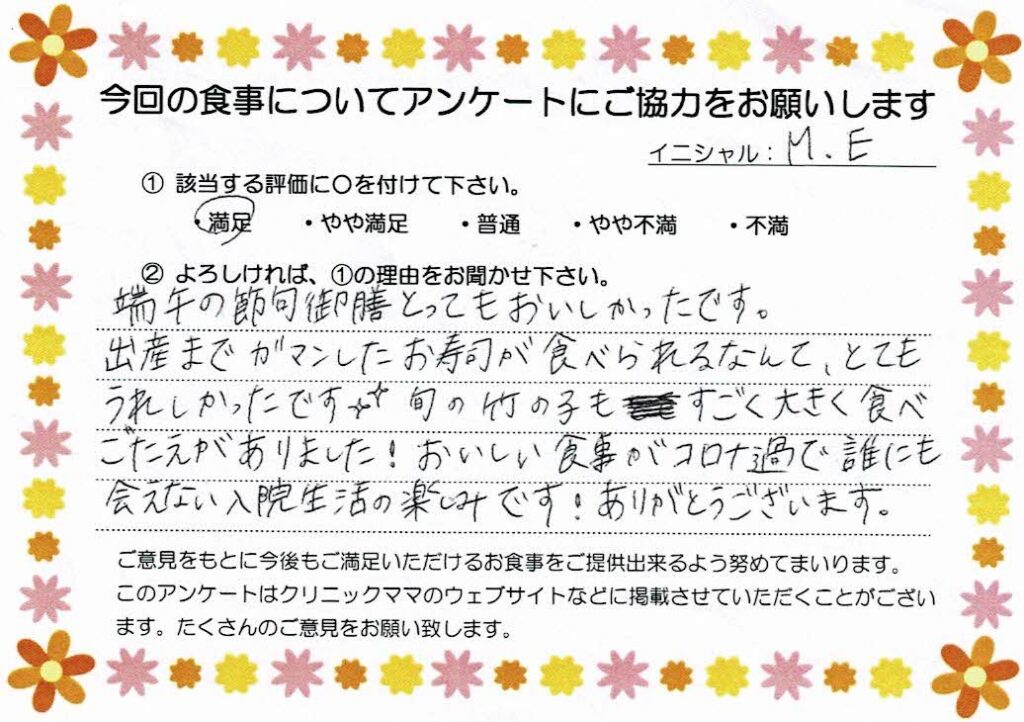 今回の食事についてアンケートにご協力をお願いします
イニシャル：M.E
① 該当する評価に〇を付けて下さい。
・満足 ・やや満足 ・普通 ・やや不満 ・不満
② よろしければ、①の理由をお聞かせ下さい。
端午の節句御膳とってもおいしかったです。
出産までガマンしたお寿司が食べられるなんて、とても
うれしかったです☆☆ 旬の竹の子もすごく大きく食べ
ごたえがありました！おいしい食事がコロナ過で誰にも
会えない入院生活の楽しみです！ありがとうございます。
ご意見をもとに今後もご満足いただけるお食事をご提供出来るよう努めてまいります。
このアンケートはクリニックママのウェブサイトなどに掲載させていただくことがござい
ます。たくさんのご意見をお願い致します。